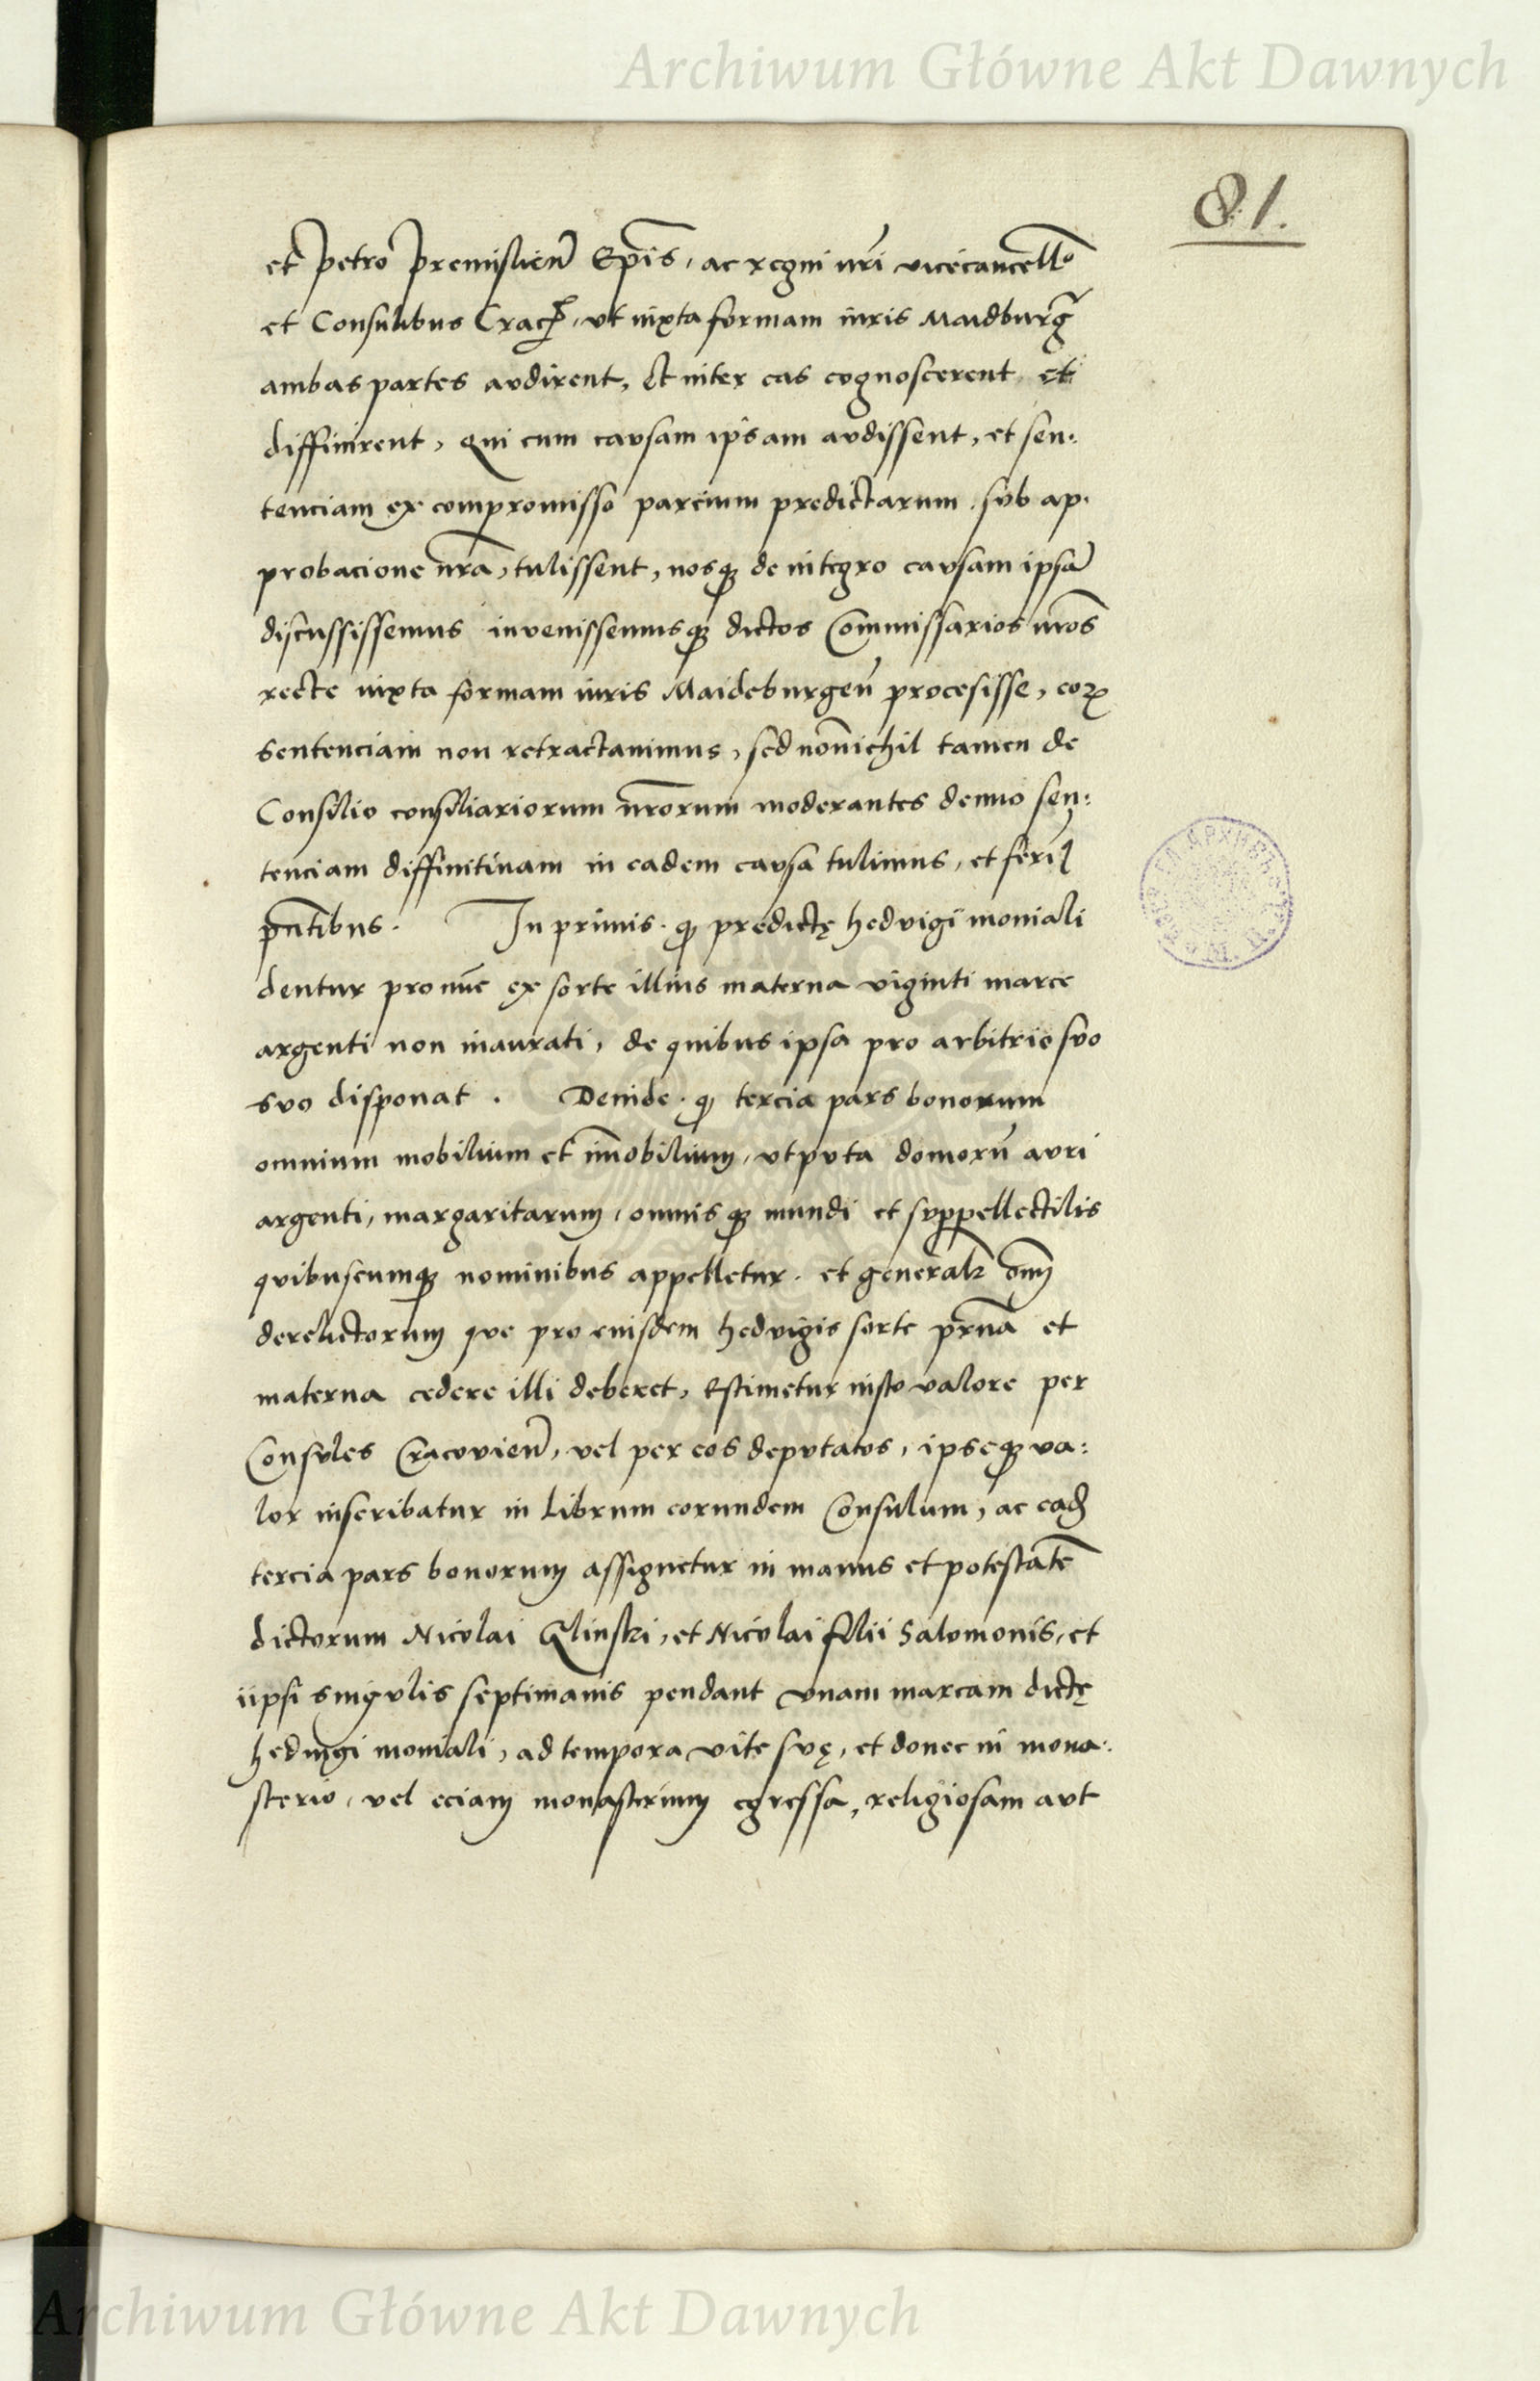 Archiwum Główne Akt Dawnych
81.
et petro premislien̄ Ep̄is, ac regni nr̄i vicecancell̄o
et Consulibus Crac̄, vt iuxta formam iuris Maidburḡ
ambas partes audirent, Et inter eas cognoscerent et
diffinirent, Qui cum causam ipsam audissent, et sen:
tenciam ex compromisso parcium predictarum sub ap.
probacione nr̄a, tulissent, nosqꝫ de integro causam ipsā
discussissemus invenissemusqꝫ dictos Commissarios nr̄os
recte iuxta formam iuris Maideburgen̄ procesisse, eoꝝ
sentenciam non retractauimus, sed non̄ichil tamen de
Consilio consiliariorum nr̄orum moderantes denuo sen:
tenciam diffinitiuam in eadem causa tulimus, et ferīꝰ
pn̄tibus. In primis. ꝙ predictę hedvigi moniali
dentur pro nūc ex sorte illius materna viginti marce
argenti non inaurati, de quibus ipsa pro arbitrio suo
suo disponat. Deinde. ꝙ tercia pars bonorum
omnium mobilium et im̄obilium, vtputa domorū auri
argenti, margaritarum, omnisqꝫ mundi et suppellectilis
quibuscumqꝫ nominibus appelletur. et generalr̄ om̄
derelictorum que pro eiusdem hedvigis sorte pr̄na et
materna cedere illi deberet, Estimetur iusto valore per
Consules Cracovien̄, vel per eos deputatos, ipseqꝫ va:
lor inscribatur in Librum eorundem Consulum, ac ead̄
tercia pars bonorum assignetur in manus et potestatē
dictorum Nicolai Glinski, et Nicolai filii Salomonis, et
iipsi singulis septimanis pendant vnam marcam dictę
hedvigi moniali, ad tempora vite suę, et donec in mona:
sterio, vel eciam monasterium egressa, religiosam aut
Archiwum Główne Akt Dawnych